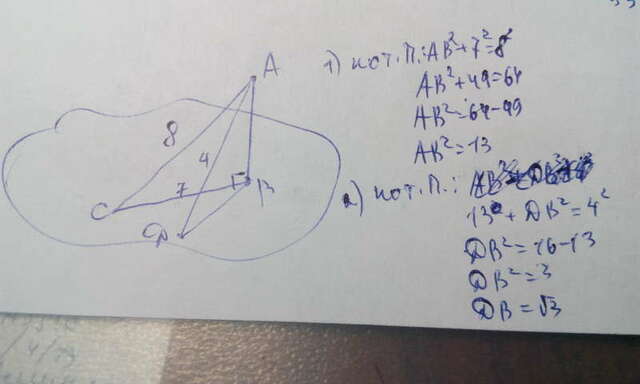 A
8
4
7
C
B
D
1) по т. П.: AB²+7²=8²
AB²+49=64
AB²=64-49
AB²=13
2) по т. П.:
13 + DB²=4²
DB²=16-13
DB²=3
DB=√3